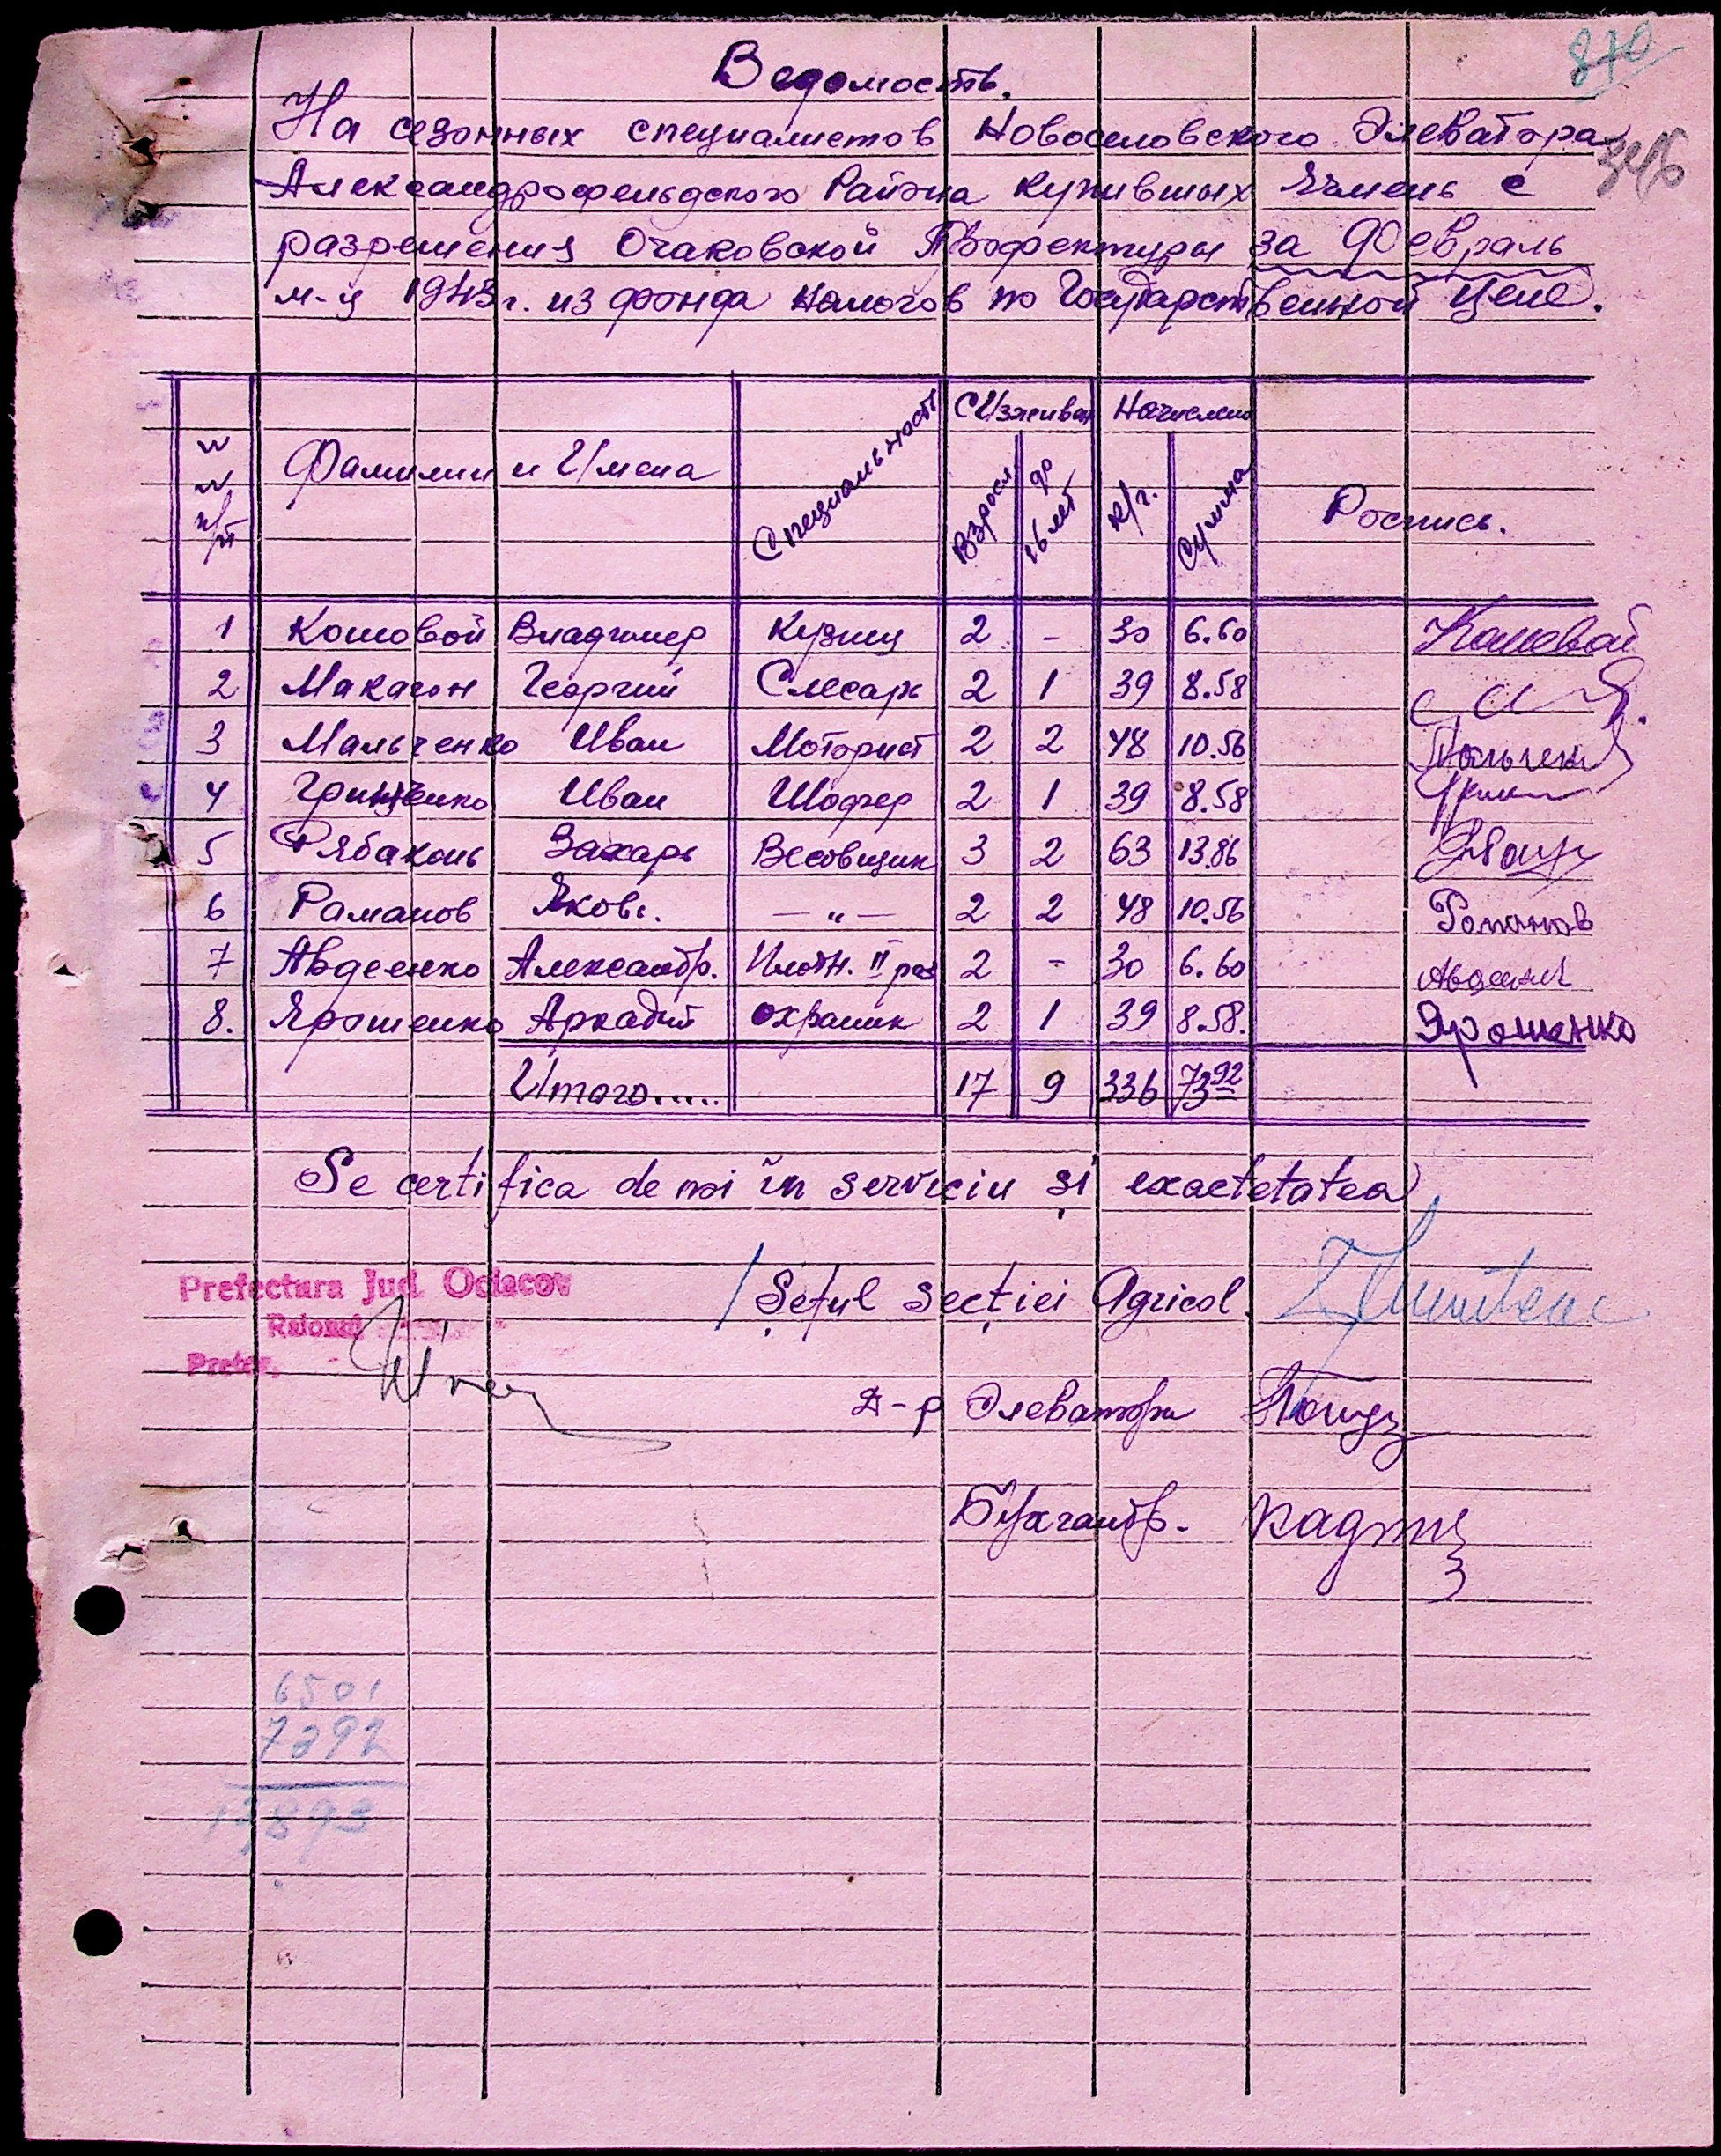 870
346
Ведомость.
На сезонных специалистов Новоселовского Элеватора
Александрофельдского Района купивших Ячмень с
разрешения Очаковской Префектуры за Февраль
м-ц 1943 г. из фонда налогов по Государственной цене.
№ № п/п Фамилии и Имена Специальность С Иждивен Начислено Роспись.
Взросл до 16 лет к/г. Сумма
1 Кошовой Владимер Кузнец 2 - 30 6.60 Кошевой
2 Макагон Георгий Слесарь 2 1 39 8.58
3 Мальченко Иван Моторист 2 2 48 10.56 Мальченко
4 Гринченко Иван Шофер 2 1 39 8.58
5 Рябаконь Захарь Весовщик 3 2 63 13.86
6 Раманов Яковл. — „ — 2 2 48 10.56 Романов
7 Авдеенко Александр. Плотн. II раз 2 - 30 6.60 Авдеенк
8. Ярошенко Аркадий охраник 2 1 39 8.58. Ярошенко
Итого..... 17 9 336 73 92
Se certifica de noi în serviciu și exactetatea
Prefectura Jud. Ociacov
Raionul
Pretor,
Șeful Secției Agricol.
Д-р Элеватора
Бухгалтр.
6501
7392
13893